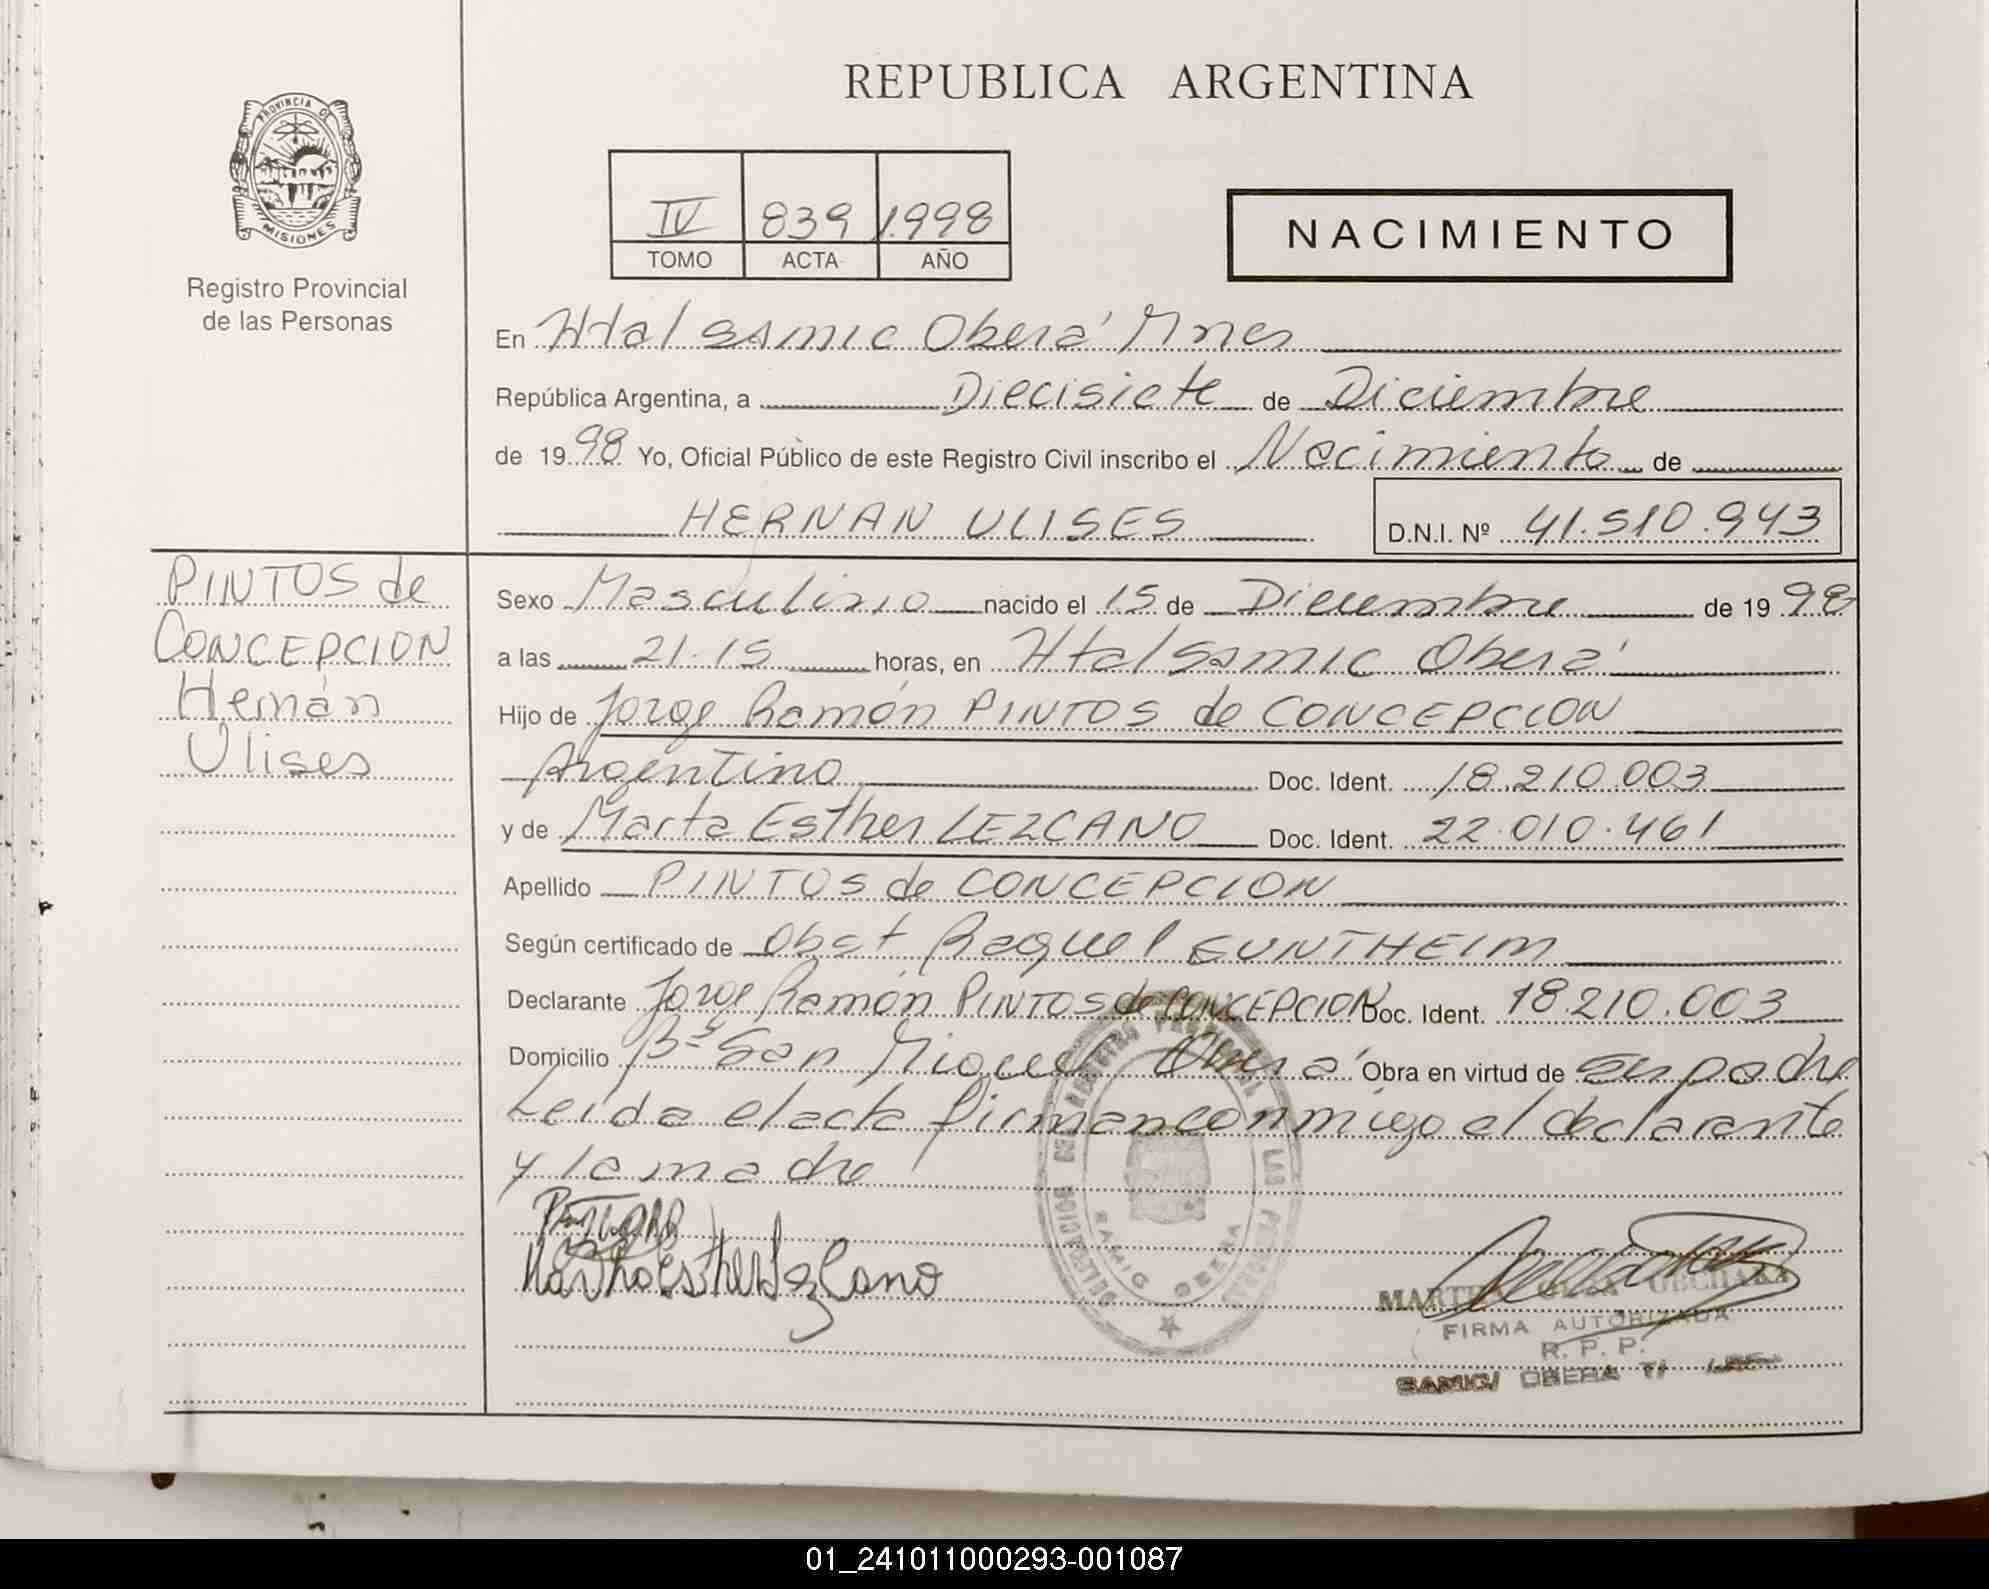 REPUBLICA ARGENTINA
PROVINCIA DE
MISIONES
Registro Provincial
de las Personas
IV 839 1.998
TOMO ACTA AÑO
NACIMIENTO
En Htal SAMIC Oberá Mnes
República Argentina, a Diecisiete de Diciembre
de 1998 Yo, Oficial Público de este Registro Civil inscribo el Nacimiento de
HERNAN ULISES D.N.I. Nº 41.510.943
PINTOS de
CONCEPCION
Hernán
Ulises
Sexo Masculino nacido el 15 de Diciembre de 1998
a las 21.15 horas, en Htal Samic Oberá
Hijo de Jorge Ramón PINTOS de CONCEPCION
Argentino Doc. Ident. 18.210.003
y de Marta Esther LEZCANO Doc. Ident. 22.010.461
Apellido PINTOS de CONCEPCION
Según certificado de Obst Raquel GUNTHEIM
Declarante Jorge Ramón PINTOS de CONCEPCION Doc. Ident. 18.210.003
Domicilio Bº San Miguel Oberá Obra en virtud de su padre
Leida el acta firman conmigo el declarante
y la madre
Martha Esther Lezcano
SAMIC OBERA
MARTHA
FIRMA AUTORIZADA
R. P. P.
SAMIC/ OBERA
01_241011000293-001087